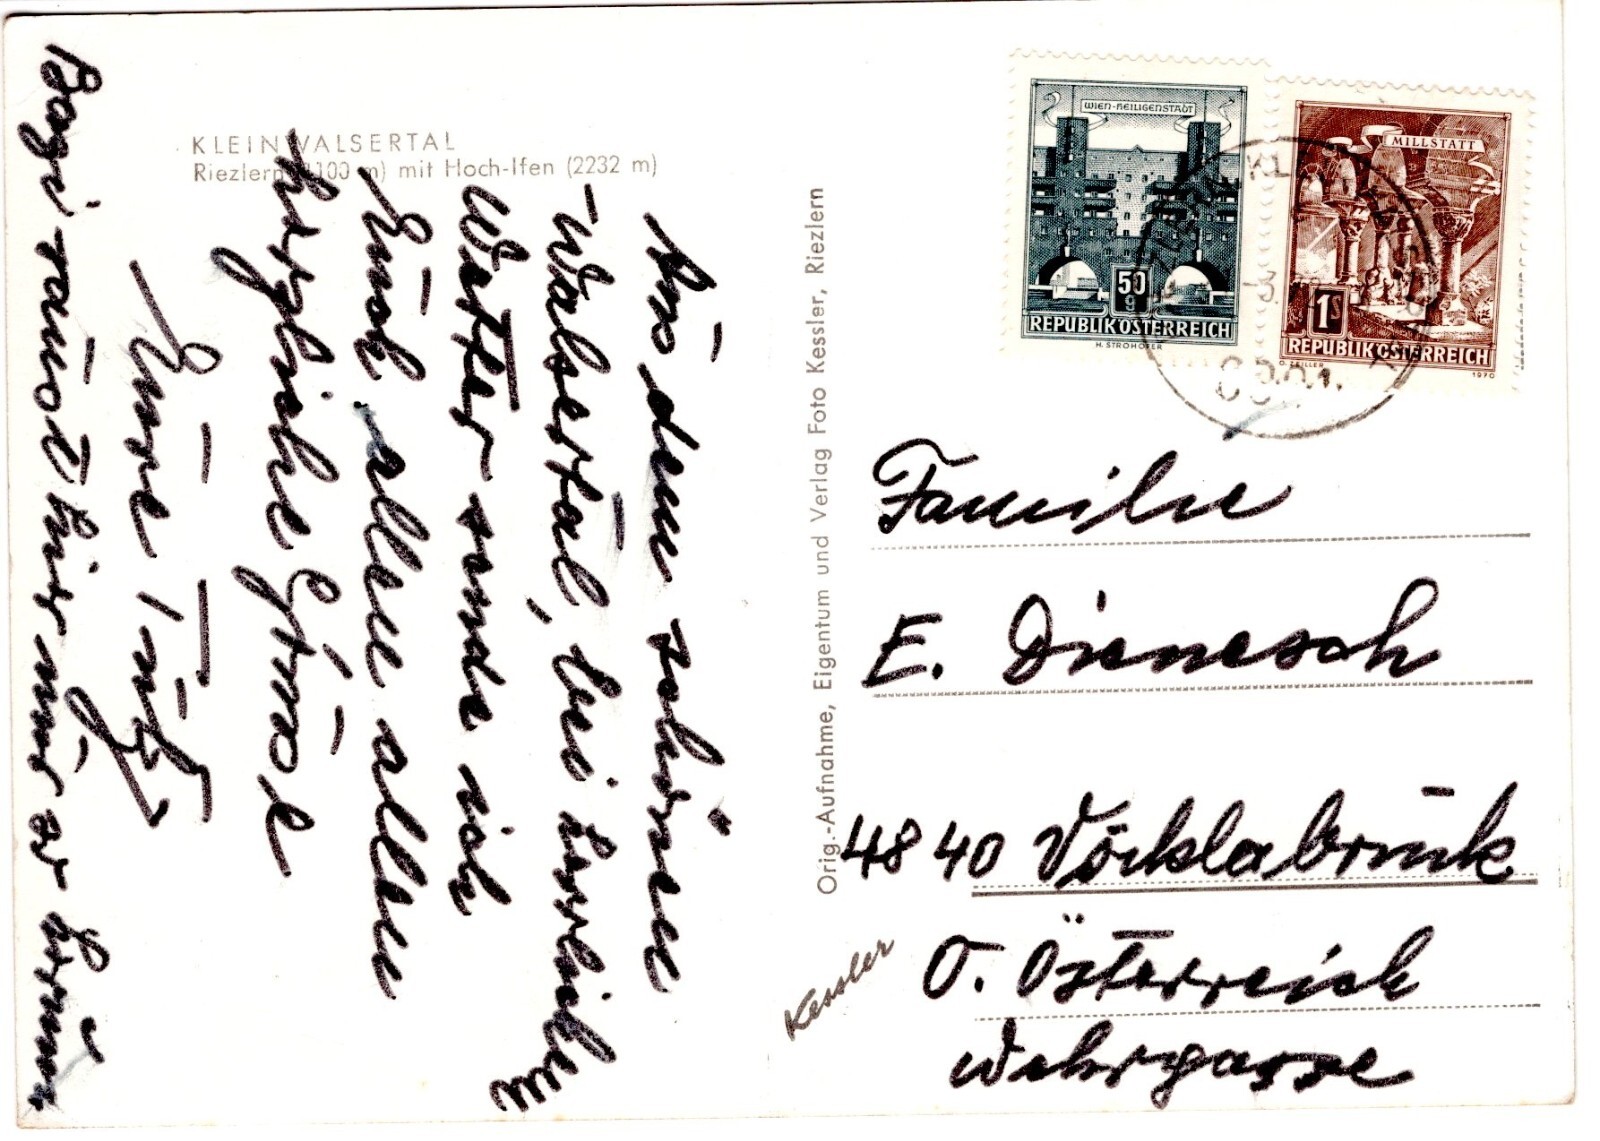 KLEINWALSERTAL
Riezlern (1100 m) mit Hoch-Ifen (2232 m)
Aus dem schönen
-Walsertal, bei herrlichem
Wetter sende ich
Euch allen allen
herzliche Grüsse
Eure
Orig.-Aufnahme, Eigentum und Verlag Foto Kessler, Riezlern
Kessler
WIEN-HEILIGENSTADT
50
g
REPUBLIK ÖSTERREICH
H. STROHOFER
MILLSTATT
1S
REPUBLIK ÖSTERREICH
G. ZEILLER
1970
Familie
E. Dienesch
4840 Vöcklabruck
O. Österreich
Wehrgasse